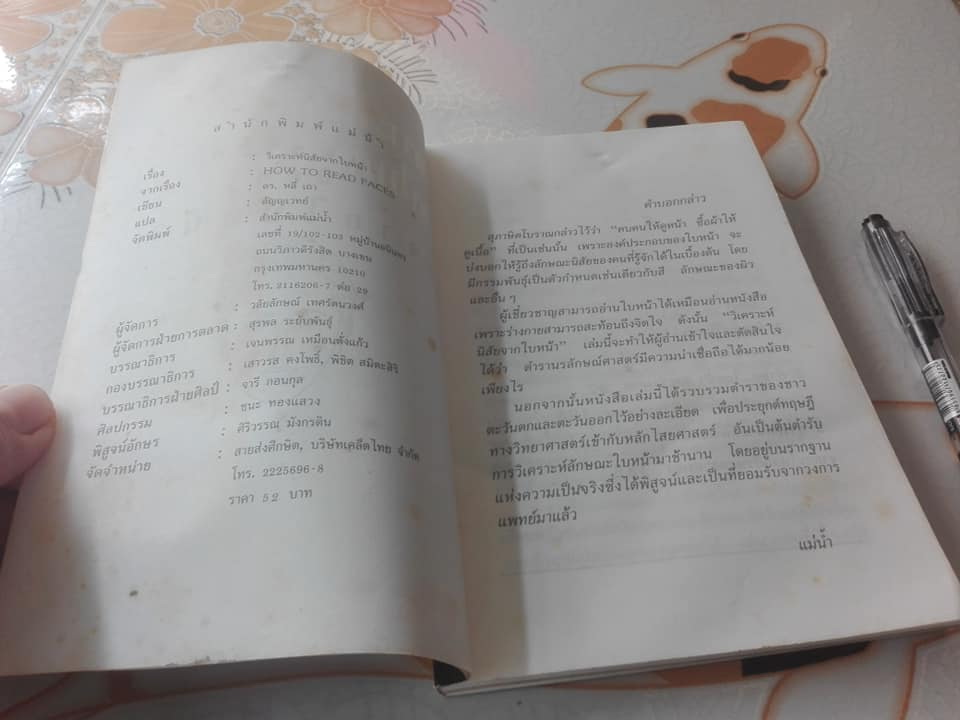 สำนักพิมพ์แม่น้ำ
เรื่อง : วิเคราะห์นิสัยจากใบหน้า
จากเรื่อง : HOW TO READ FACES
เขียน : ดร. หลี่ เฉา
แปล : ธัญญเวทย์
จัดพิมพ์ : สำนักพิมพ์แม่น้ำ
เลขที่ 19/102-103 หมู่บ้าน
ถนนวิภาวดีรังสิต บางเขน
กรุงเทพมหานคร 10210
โทร. 2116206-7 ต่อ 29
ผู้จัดการ : วลัยลักษณ์ เทศรัตนวงศ์
ผู้จัดการฝ่ายการตลาด : สุรพล ระงับพันธุ์
บรรณาธิการ : เจนพรรณ เหมือนตั่งแก้ว
กองบรรณาธิการ : เสาวรส คงโพธิ์, พิชิต สมิตะสิริ
บรรณาธิการฝ่ายศิลป์ : จารี กอนกุล
ศิลปกรรม : ชนะ ทองแสวง
พิสูจน์อักษร : ศิริวรรณ มังกรดิน
จัดจำหน่าย : สายส่งศึกษิต, บริษัทเคล็ดไทย จำกัด
โทร. 2225696-8
ราคา 52 บาท
คำบอกกล่าว
สุภาษิตโบราณกล่าวไว้ว่า "คบคนให้ดูหน้า ซื้อผ้าให้
ดูเนื้อ" ที่เป็นเช่นนั้น เพราะองค์ประกอบของใบหน้า จะ
บ่งบอกให้รู้ถึงลักษณะนิสัยของคนที่รู้จักได้ในเบื้องต้น โดย
มีกรรมพันธุ์เป็นตัวกำหนดเช่นเดียวกับสี ลักษณะของผิว
และอื่น ๆ
ผู้เชี่ยวชาญสามารถอ่านใบหน้าได้เหมือนอ่านหนังสือ
เพราะร่างกายสามารถสะท้อนถึงจิตใจ ดังนั้น "วิเคราะห์
นิสัยจากใบหน้า" เล่มนี้จะทำให้ผู้อ่านเข้าใจและตัดสินใจ
ได้ว่า ตำรานรลักษณ์ศาสตร์มีความน่าเชื่อถือได้มากน้อย
เพียงไร
นอกจากนั้นหนังสือเล่มนี้ได้รวบรวมตำราของชาว
ตะวันตกและตะวันออกไว้อย่างละเอียด เพื่อประยุกต์ทฤษฎี
ทางวิทยาศาสตร์เข้ากับหลักไสยศาสตร์ อันเป็นต้นตำรับ
การวิเคราะห์ลักษณะใบหน้ามาช้านาน โดยอยู่บนรากฐาน
แห่งความเป็นจริงซึ่งได้พิสูจน์และเป็นที่ยอมรับจากวงการ
แพทย์มาแล้ว
แม่น้ำ